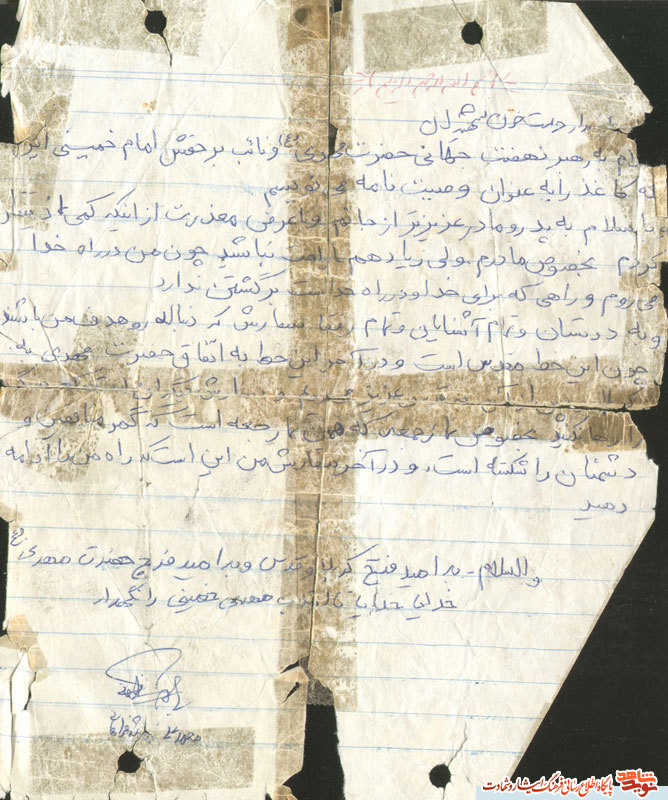 بسم الله الرحمن الرحیم
حرمت خون شهیدان
به رهبر نهضت جهانی حضرت مهدی (ع) و نائب برحقش امام خمینی این
کاغذ را به عنوان وصیت نامه می نویسم
با سلام به پدر و مادر عزیزتر از جانم و با عرض معذرت از اینکه کمی
کردم بخصوص مادرم ولی زیاد هم ناراحت نباشید چون من در راه خدا
می روم و راهی که برای خدا و در راه خداست برگشتن ندارد
و به دوستان و تمام آشنایان و تمام سفارش که دنباله رو هدف من باشید
چون این خط مقدس است و در آخر این خط به اتفاق حضرت مهدی به
عزیز
را رها نکنید بخصوص نماز جمعه که همین نماز جمعه است که کمر منافقین و
دشمنان را شکسته است و در آخر سفارش من این است که راه من را ادامه
دهید
والسلام - به امید فتح کربلا و قدس و به امید فرج حضرت مهدی (ع)
خدایا خدایا تا انقلاب مهدی خمینی را نگهدار
نوید شاهد
پایگاه اطلاع رسانی فرهنگ ایثار و شهادت